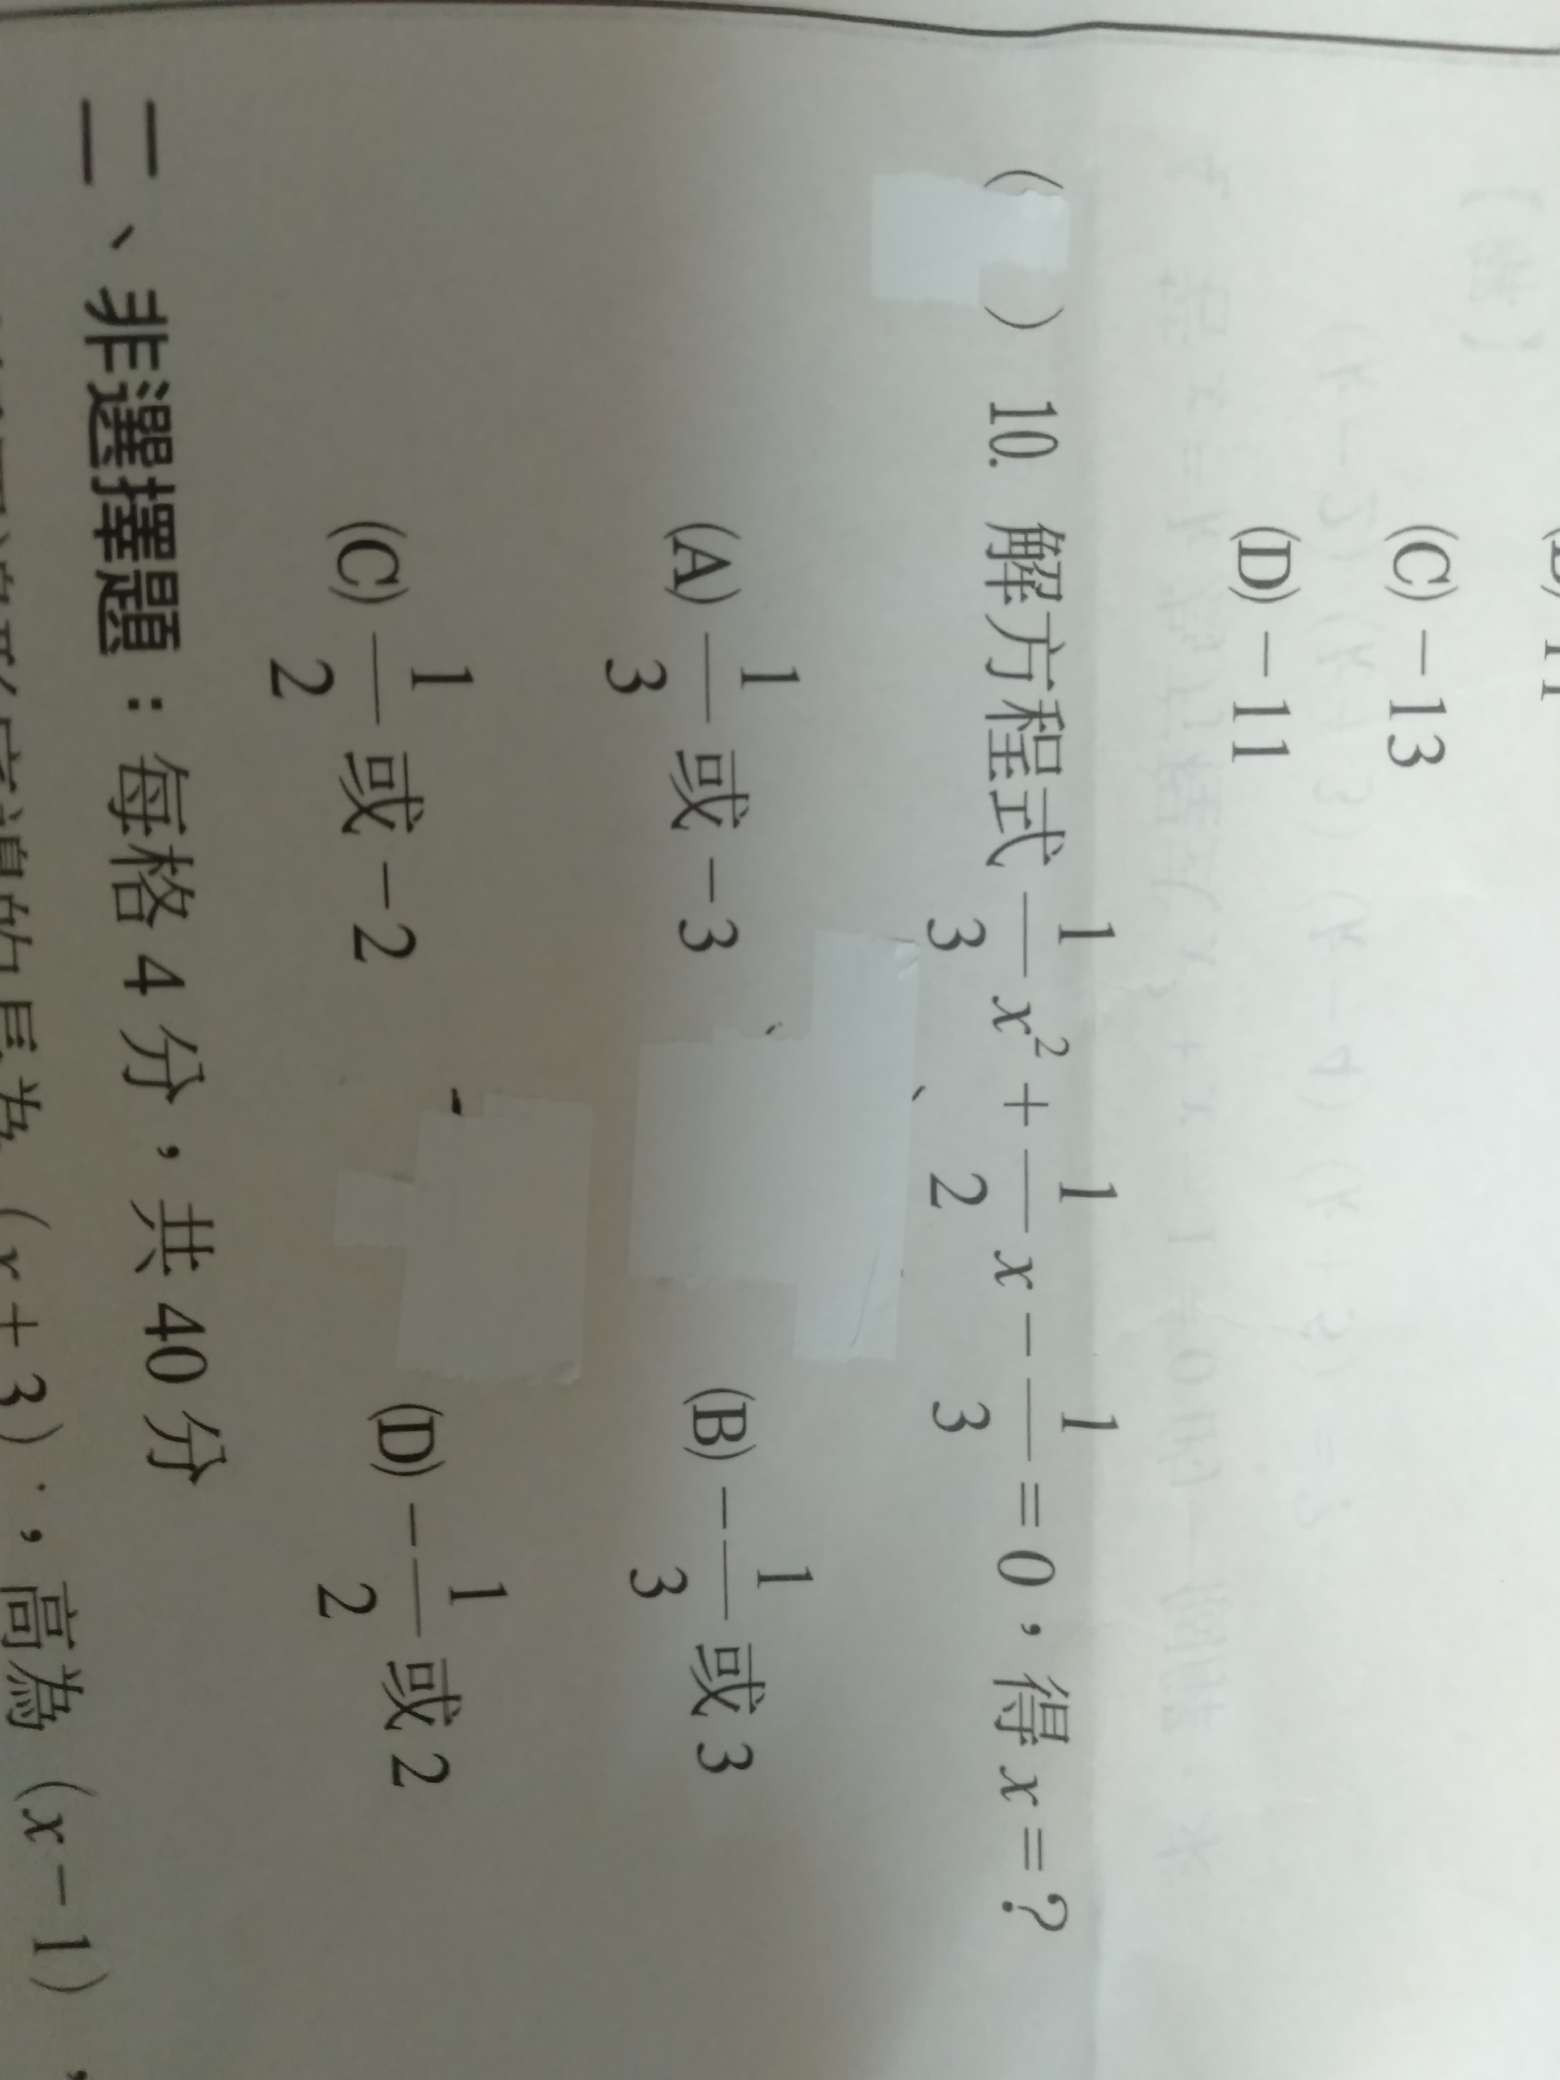 (C) －13
(D) －11
(　) 10. 解方程式 1/3 x² + 1/2 x － 1/3 = 0，得 x = ?
(A) 1/3 或 －3　(B) －1/3 或 3
(C) 1/2 或 －2　(D) －1/2 或 2
二、非選擇題：每格 4 分，共 40 分
的長為（x + 3），高為（x － 1），